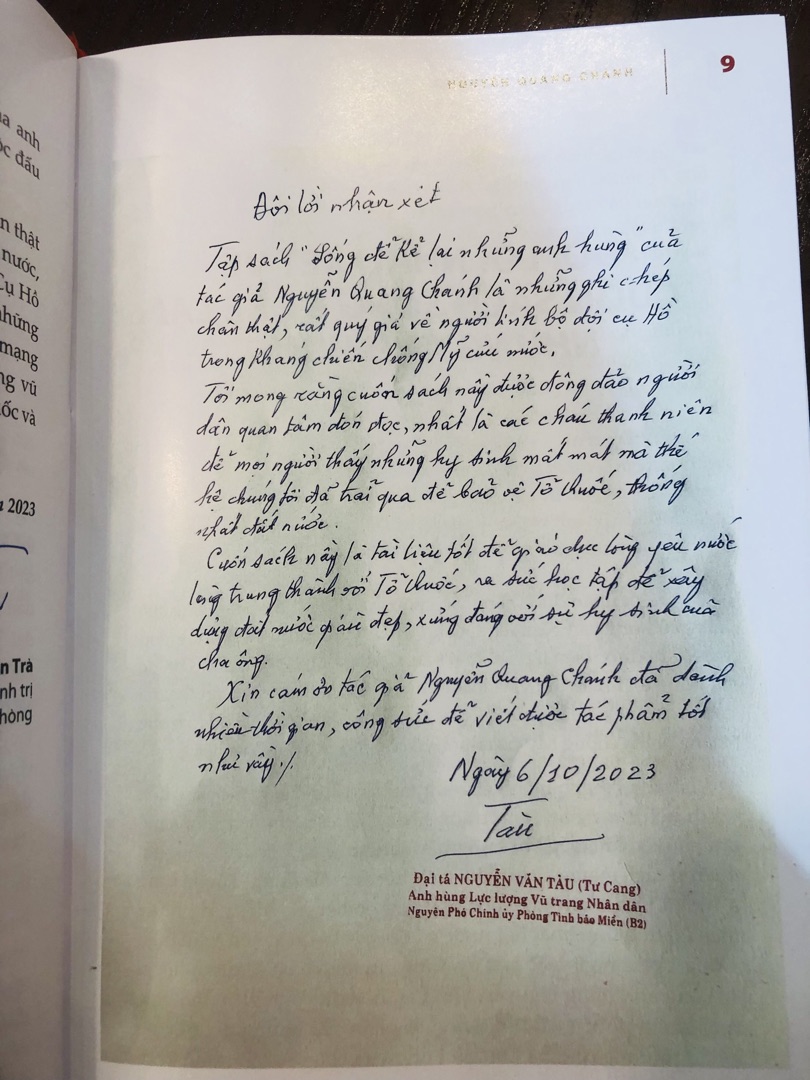 NGUYỄN QUANG CHÁNH
9
a anh
ộc đấu
n thật
nước,
Cụ Hồ
hững
mạng
ng vũ
ốc và
2023
n Trà
nh trị
hòng
Đôi lời nhận xét
Tập sách "Sống để kể lại những anh hùng" của
tác giả Nguyễn Quang Chánh là những ghi chép
chân thật, rất quý giá về người lính bộ đội cụ Hồ
trong kháng chiến chống Mỹ cứu nước.
Tôi mong rằng cuốn sách này được đông đảo người
dân quan tâm đón đọc, nhất là các cháu thanh niên
để mọi người thấy những hy sinh mất mát mà thế
hệ chúng tôi đã trải qua để bảo vệ Tổ Quốc, thống
nhất đất nước.
Cuốn sách này là tài liệu tốt để giáo dục lòng yêu nước
lòng trung thành với Tổ Quốc, ra sức học tập để xây
dựng đất nước giàu đẹp, xứng đáng với sự hy sinh của
cha ông.
Xin cám ơn tác giả Nguyễn Quang Chánh đã dành
nhiều thời gian, công sức để viết được tác phẩm tốt
như vậy./.
Ngày 6/10/2023
Tàu
Đại tá NGUYỄN VĂN TÀU (Tư Cang)
Anh hùng Lực lượng Vũ trang Nhân dân
Nguyên Phó Chính ủy Phòng Tình báo Miền (B2)